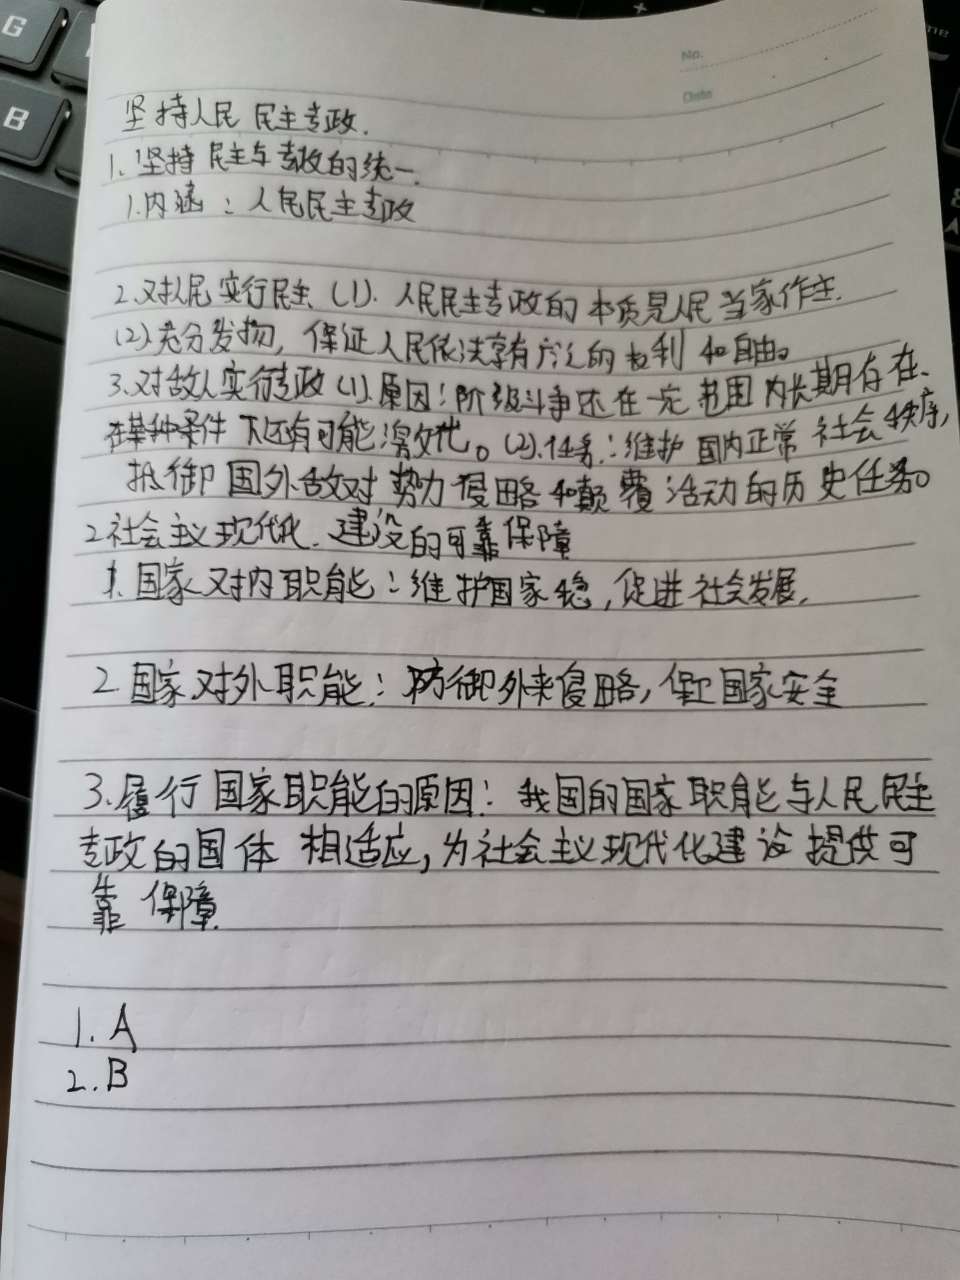 G
B
No.
Date
坚持人民民主专政.
1. 坚持民主与专政的统一.
1.内涵：人民民主专政
2.对人民实行民主 (1). 人民民主专政的本质是人民当家作主.
(2).充分发扬，保证人民依法享有广泛的权利和自由。
3.对敌人实行专政 (1).原因：阶级斗争还在一定范围内长期存在、
在某种条件下还有可能激化。(2).任务：维护国内正常社会秩序，
抵御国外敌对势力侵略和颠覆活动的历史任务。
2.社会主义现代化.建设的可靠保障
1.国家对内职能：维护国家稳，促进社会发展.
2.国家对外职能：防御外来侵略，保卫国家安全
3.履行国家职能的原因：我国的国家职能与人民民主
专政的国体相适应，为社会主义现代化建设提供可
靠保障.
1. A
2. B